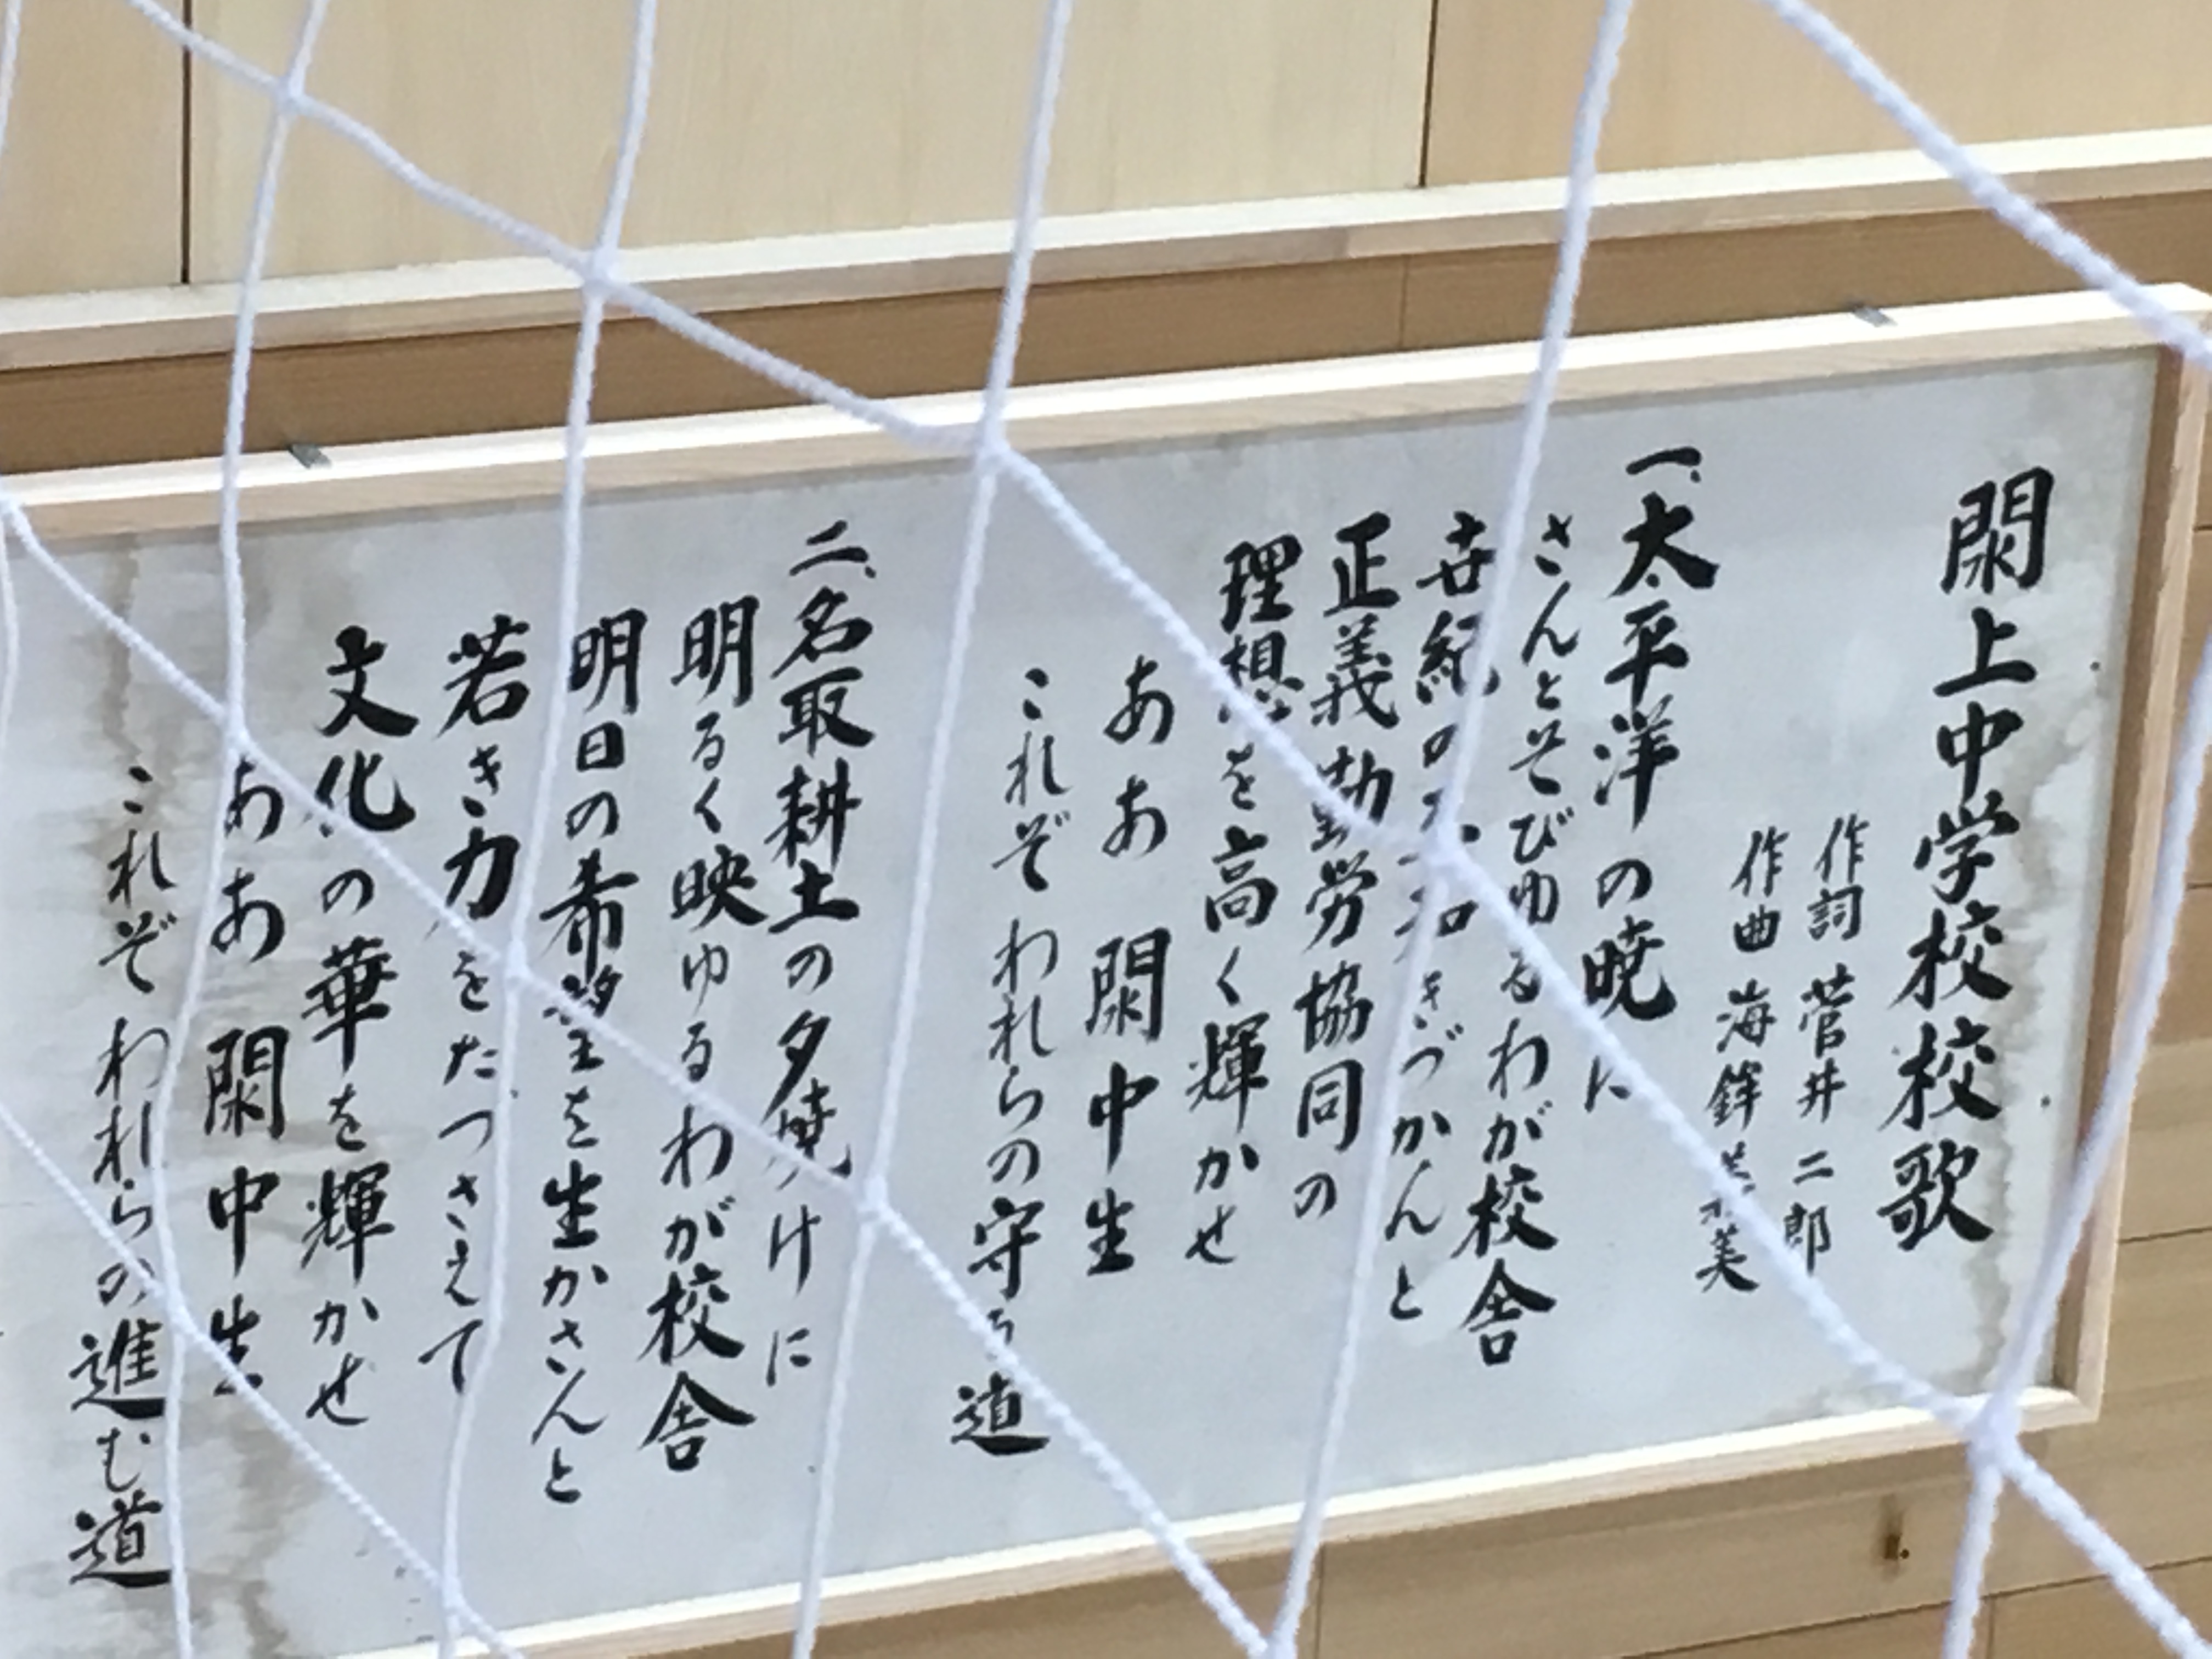 閖上中学校校歌
作詞 菅井二郎
作曲 海鉾 美
一、太平洋の暁に
さんとそびゆるわが校舎
世紀の平和きづかんと
正義勤労協同の
理想を高く輝かせ
ああ 閖中生
これぞ われらの守る道
二、名取耕土の夕焼けに
明るく映ゆるわが校舎
明日の希望を生かさんと
若き力をたづさえて
文化の華を輝かせ
ああ 閖中生
これぞ われらの進む道